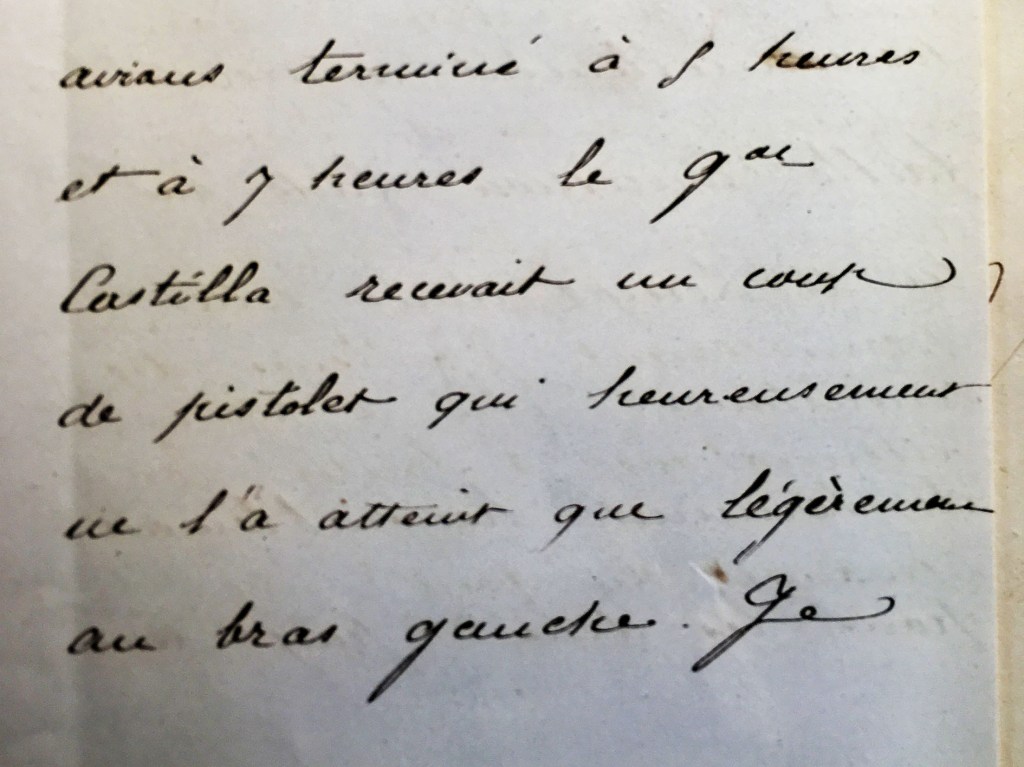 avions terminé à 5 heures
et à 7 heures le gal
Castilla recevait un coup
de pistolet qui heureusement
ne l'a atteint que légèrement
au bras gauche. Je